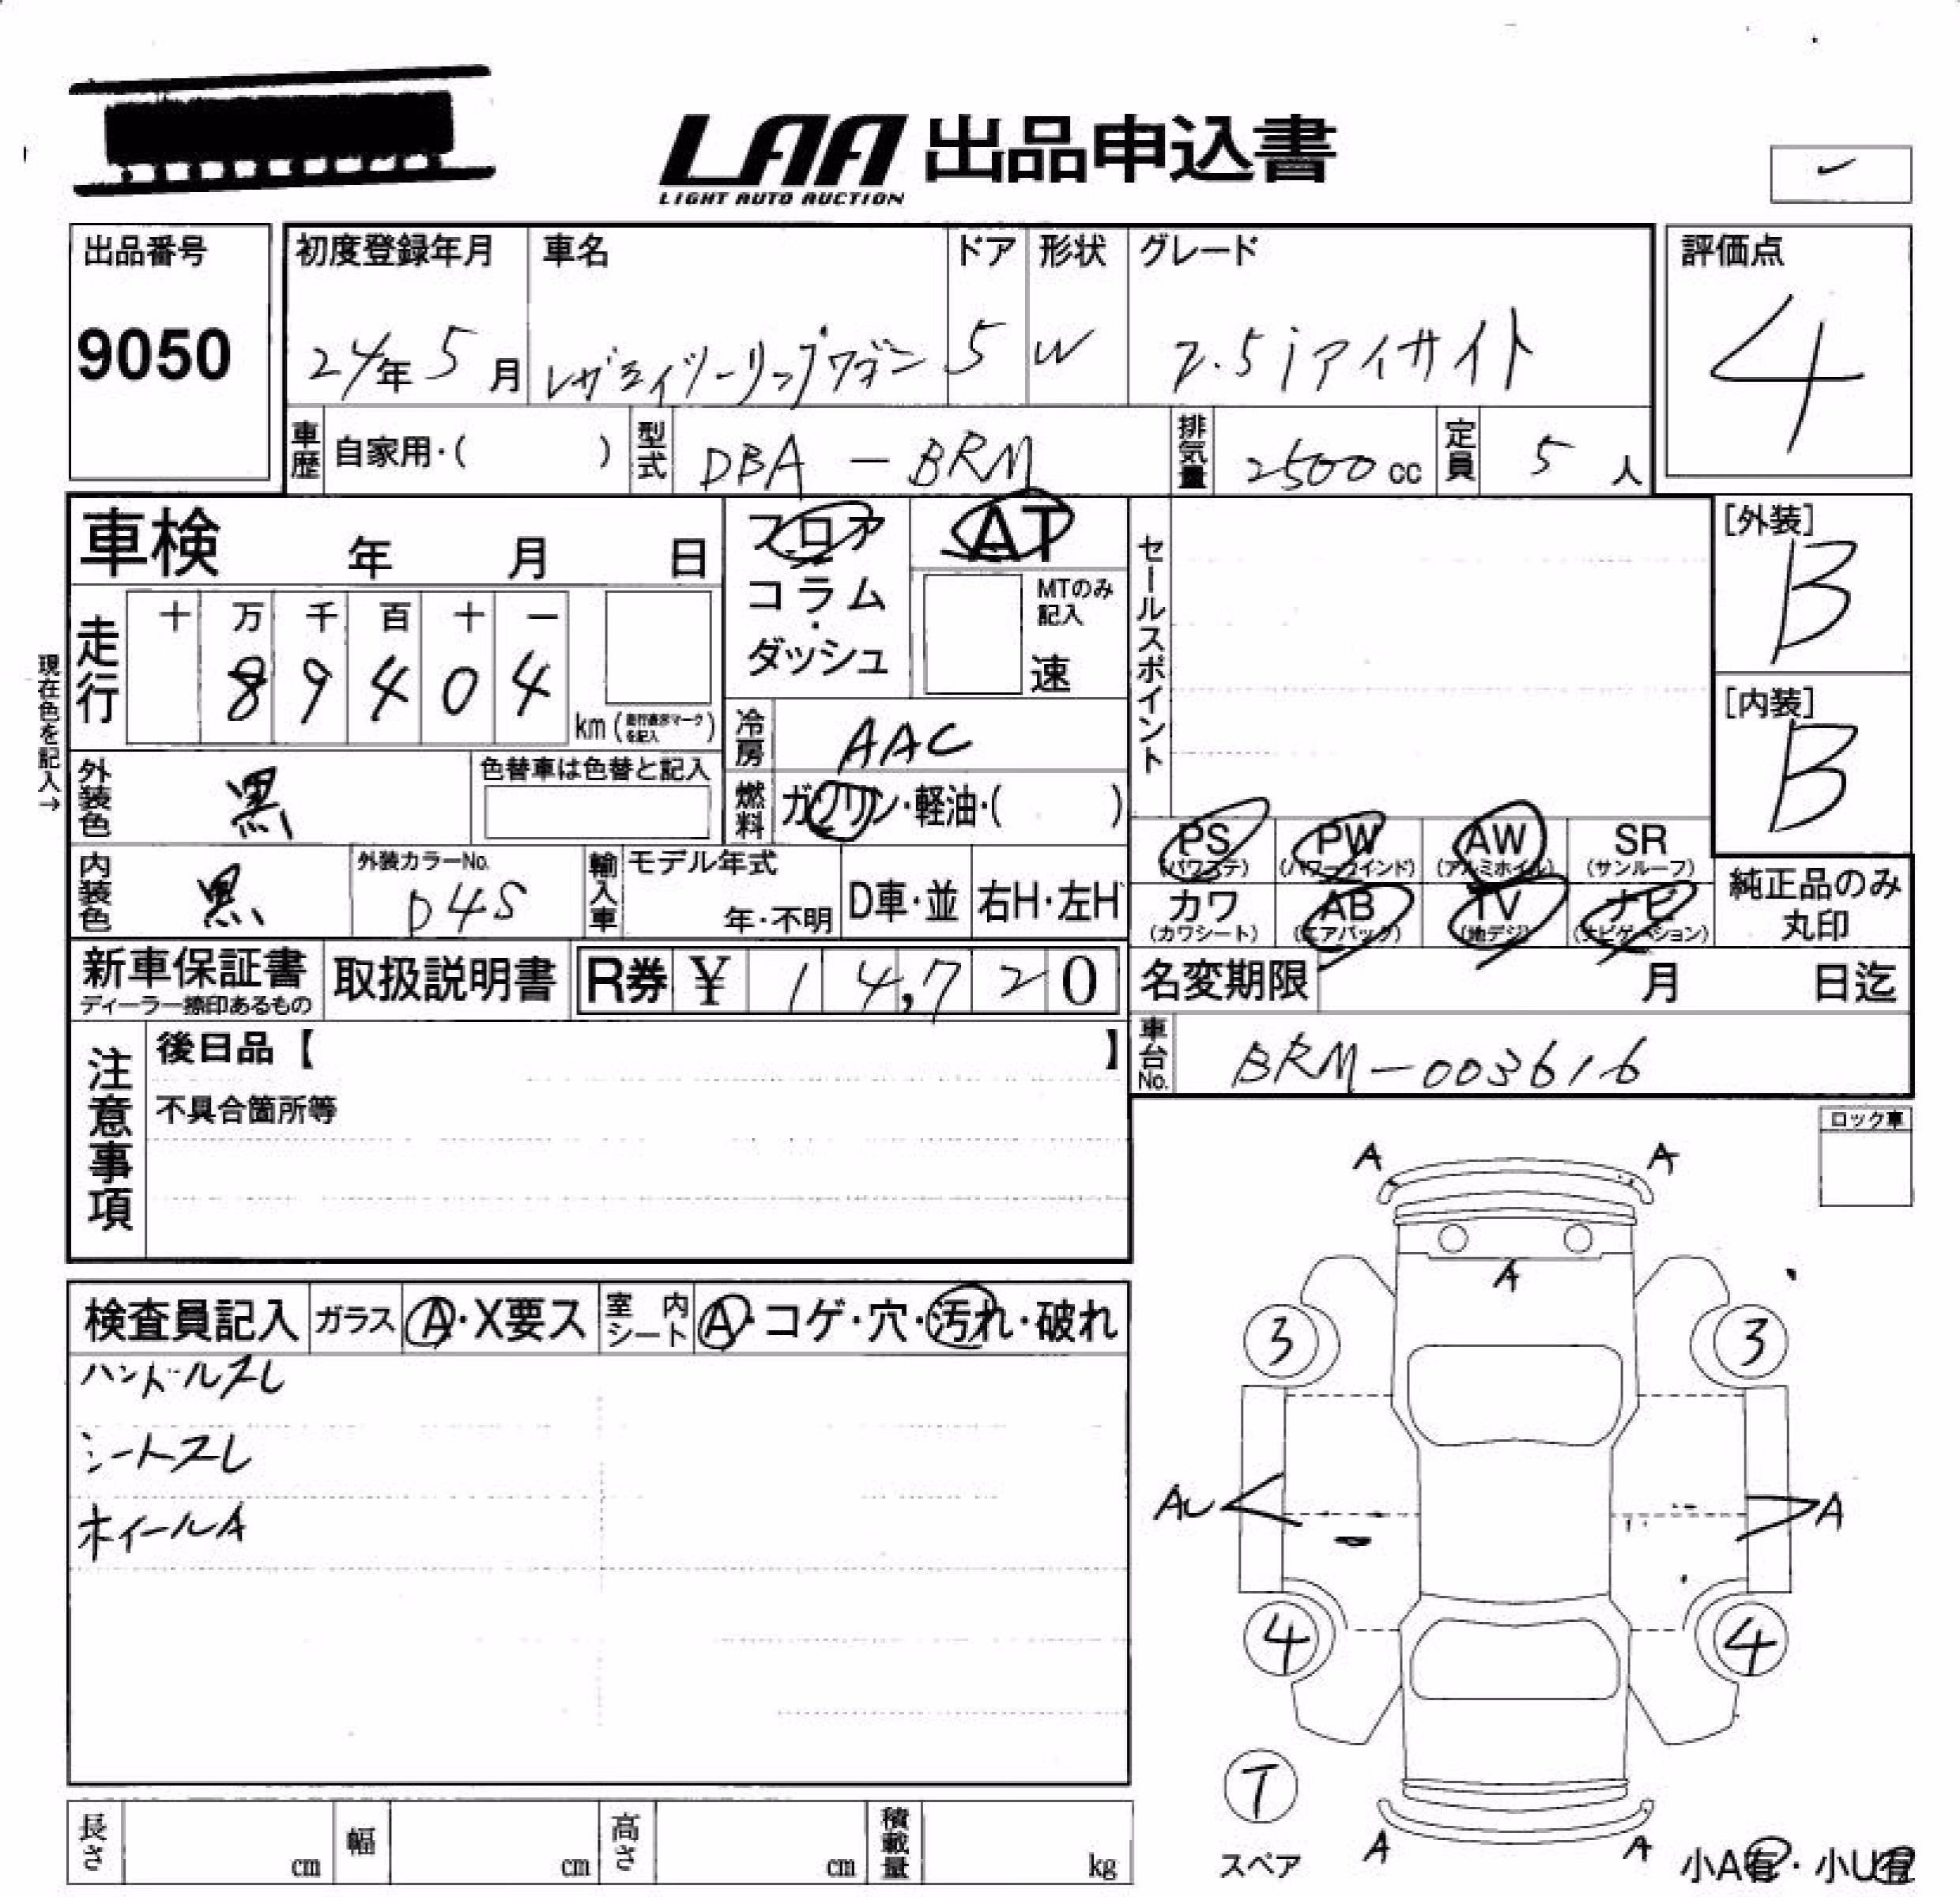 LAA 出品申込書
LIGHT AUTO AUCTION
出品番号
9050
初度登録年月 車名 ドア 形状 グレード
24年5月 レガシィツーリングワゴン 5 W 2.5iアイサイト
評価点
4
車歴 自家用・( ) 型式 DBA-BRM 排気量 2500cc 定員 5人
車検 年 月 日
フロア
コラム
・
ダッシュ
AT
MTのみ
記入
速
セールスポイント
[外装]
B
[内装]
B
現在色を記入→
走行
十 万 千 百 十 一
8 9 4 0 4
km(走行表示マークを記入)
冷房 AAC
外装色 黒
色替車は色替と記入
燃料 ガソリン・軽油・( )
PS PW AW SR
(パワステ) (パワーウインド) (アルミホイル) (サンルーフ)
カワ AB TV ナビ
(カワシート) (エアバック) (地デジ) (ナビゲーション)
純正品のみ
丸印
内装色 黒
外装カラーNo.
D4S
輸入車
モデル年式
年・不明
D車・並 右H・左H
新車保証書
ディーラー捺印あるもの
取扱説明書 R券 ¥ 14,720
名変期限 月 日迄
注意事項
後日品【 】
不具合箇所等
車台No. BRM-003616
ロック車
検査員記入 ガラス A・X要ス 室内シート A・コゲ・穴・汚れ・破れ
ハンドルスレ
シートスレ
ホイールA
A A
A
3 3
AU A
4 4
T
スペア
A A
小A有・小U有
長さ cm 幅 cm 高さ cm 積載量 kg